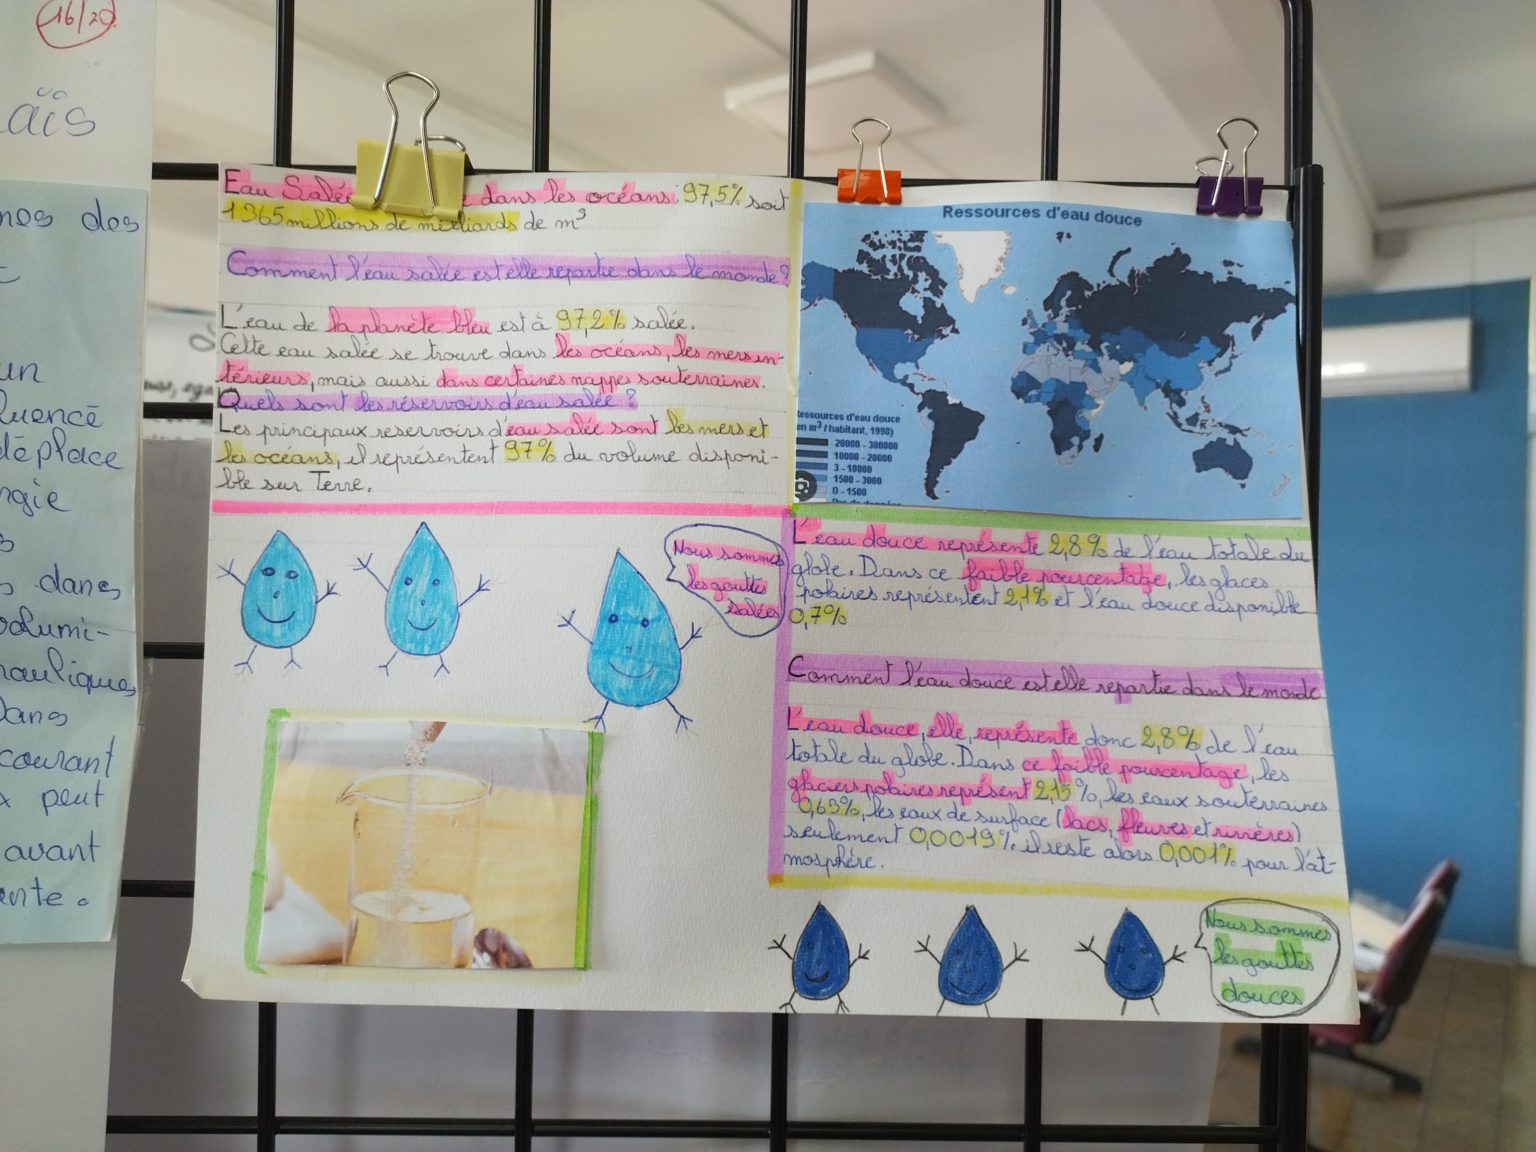 16/20
aïs
nes des
un
luencé
déplace
rgie
s dans
volumi-
raulique
Dans
courant
x peut
avant
ante.
Eau Salée dans les océans : 97,5% soit
1365 millions de milliards de m³
Comment l'eau salée est elle repartie dans le monde?
L'eau de la planète bleu est à 97,2% salée.
Cette eau salée se trouve dans les océans, les mers in-
térieurs, mais aussi dans certaines nappes souterraines.
Quels sont les réservoirs d'eau salée ?
Les principaux reservoirs d'eau salée sont les mers et
les océans, il représentent 97% du volume disponi-
ble sur Terre.
Nous sommes
les gouttes
salées
Ressources d'eau douce
ressources d'eau douce
en m³ / habitant, 1998)
20000 - 300000
10000 - 20000
3 - 10000
1500 - 3000
0 - 1500
Pas de données
L'eau douce représente 2,8% de l'eau totale du
globe. Dans ce faible pourcentage, les glaces
polaires représentent 2,1% et l'eau douce disponible
0,7%
Comment l'eau douce est elle repartie dans le monde
L'eau douce, elle, représente donc 2,8% de l'eau
totale du globe. Dans ce faible pourcentage, les
glaciers polaires représent 2,15%, les eaux souterraines
0,63%, les eaux de surface (lacs, fleuves et rivières)
seulement 0,0019% il reste alors 0,001% pour l'at-
mosphère.
Nous sommes
les gouttes
douces